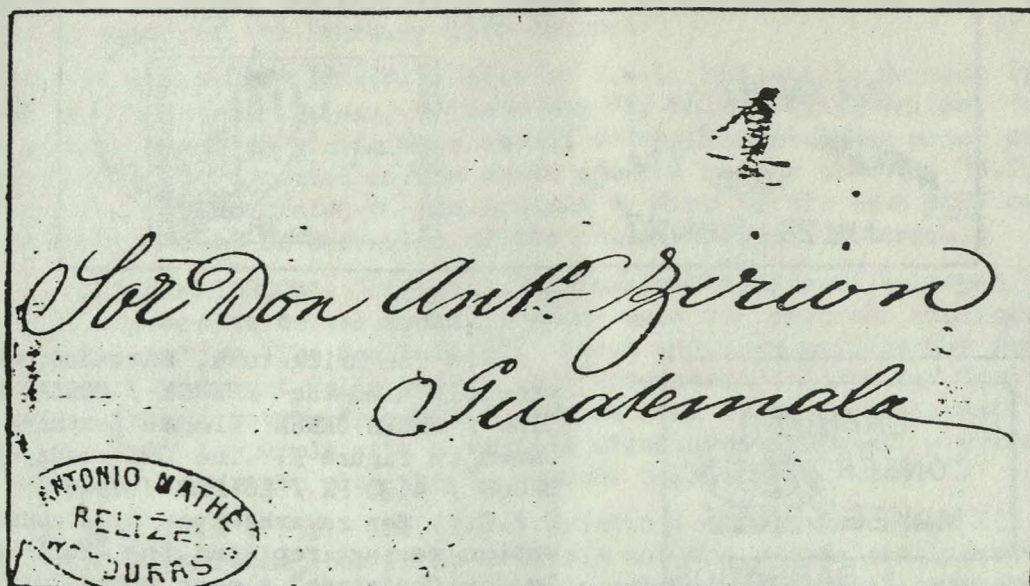 1
Sor Don Anto Berion
Guatemala
ANTONIO MATHE
BELIZE
DURAS